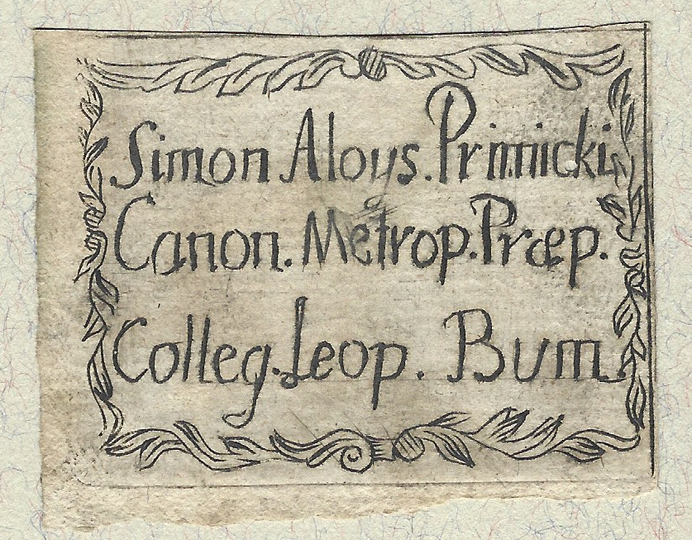 Simon Aloys. Primicki,
Canon. Metrop. Præp.
Colleg. Leop. Bum.